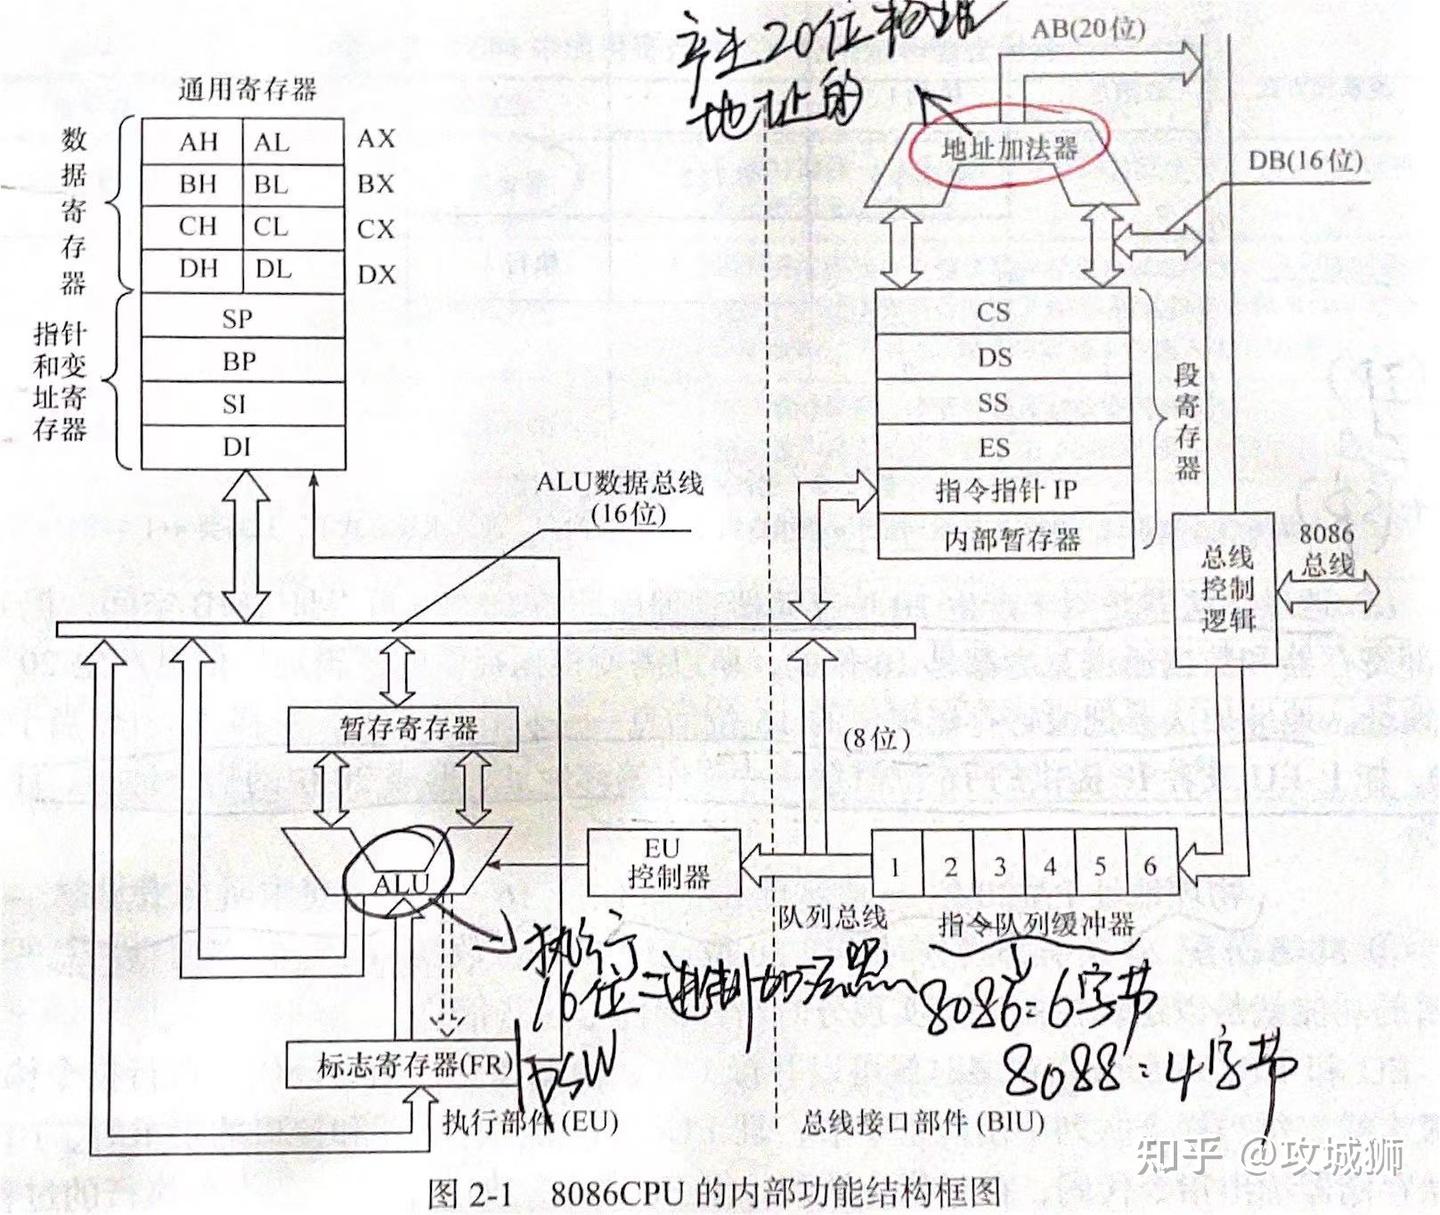 产生20位物理
地址的
AB(20位)
通用寄存器
地址加法器
DB(16位)
数据寄存器
AH AL AX
BH BL BX
CH CL CX
DH DL DX
指针和变址寄存器
SP
BP
SI
DI
CS
DS
SS
ES
指令指针 IP
内部暂存器
段寄存器
ALU数据总线
(16位)
总线
控制
逻辑
8086
总线
暂存寄存器
(8位)
ALU
EU
控制器
1 2 3 4 5 6
队列总线
指令队列缓冲器
执行
16位二进制
8086=6字节
8088=4字节
标志寄存器(FR)
PSW
执行部件(EU)
总线接口部件(BIU)
知乎 @攻城狮
图 2-1 8086CPU 的内部功能结构框图